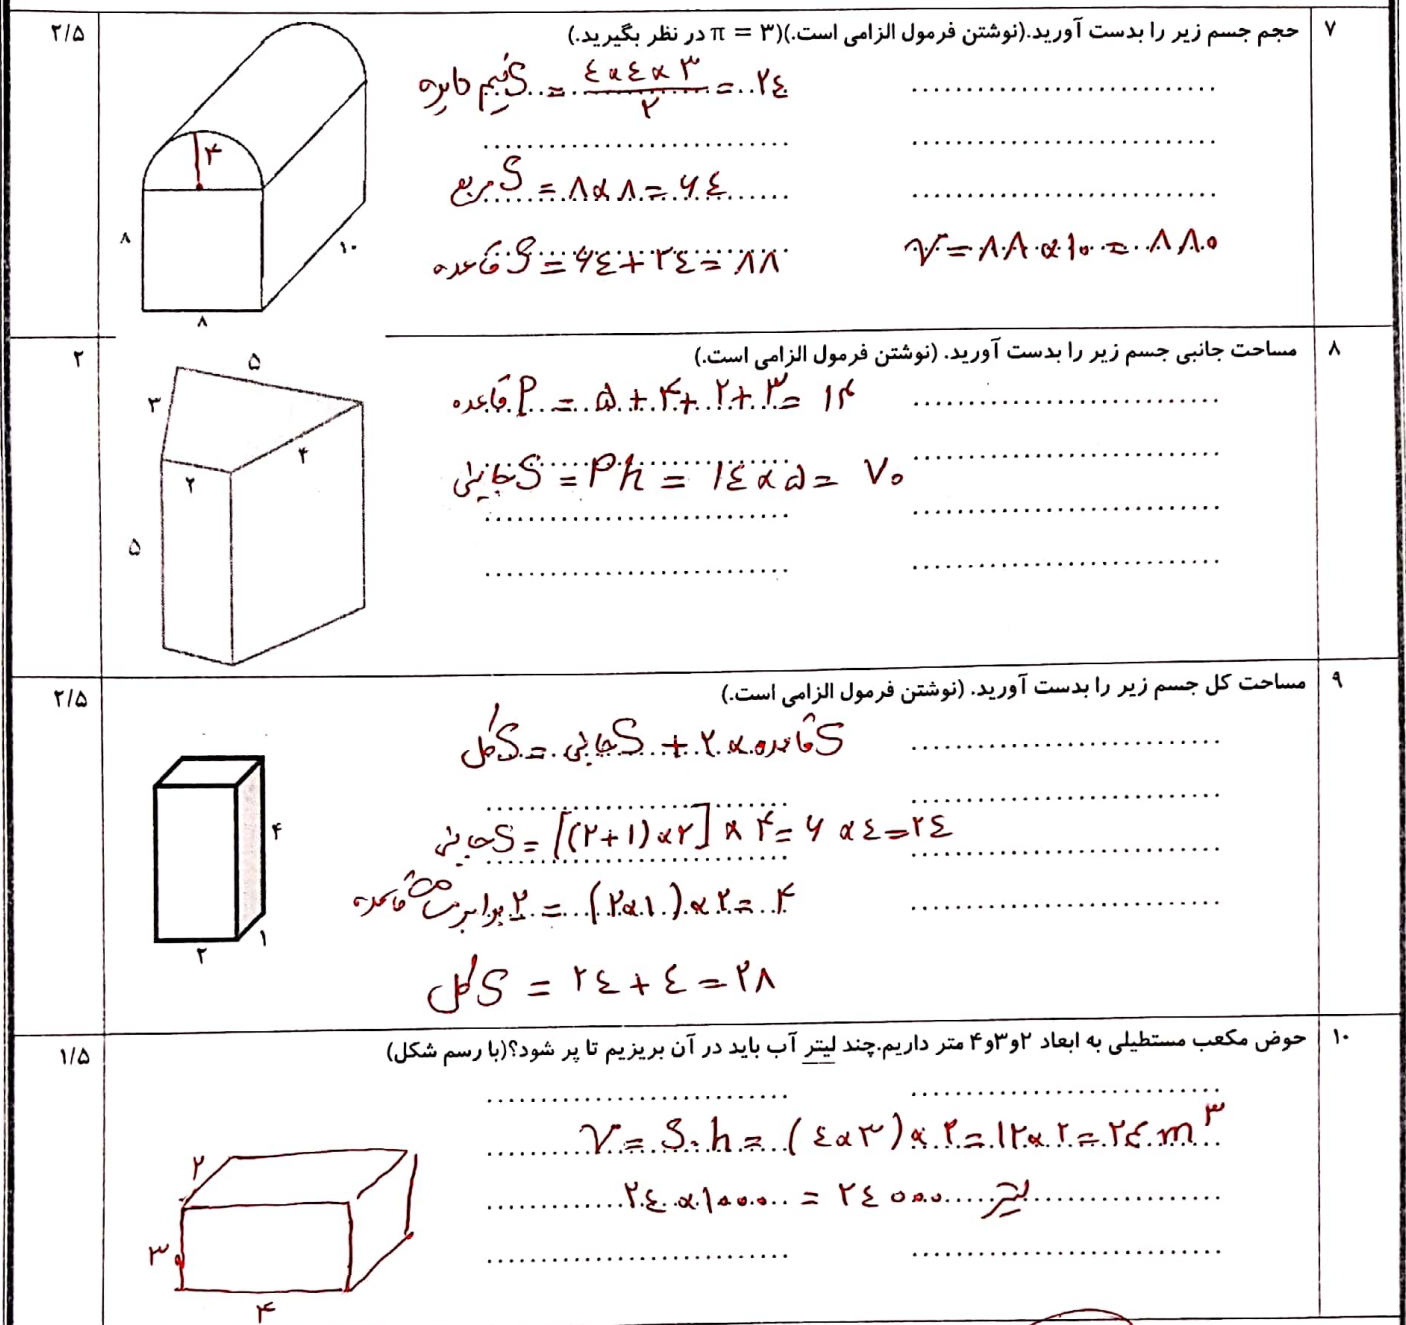 ۷ حجم جسم زیر را بدست آورید.(نوشتن فرمول الزامی است.)(π = ۳ در نظر بگیرید.) ۲/۵
S نیم دایره = ٤×٤×۳ / ۲ = ۲٤
S مربع = ۸×۸ = ۶٤
S قاعده = ۶٤+۲٤=۸۸
V = ۸۸×۱۰ = ۸۸۰
۴
۸
۱۰
۸
۸ مساحت جانبی جسم زیر را بدست آورید. (نوشتن فرمول الزامی است.) ۲
P قاعده = ۵+۴+۲+۳ = ۱۴
S جانبی = Ph = ۱٤×۵ = ۷۰
۵
۳
۴
۲
۵
۹ مساحت کل جسم زیر را بدست آورید. (نوشتن فرمول الزامی است.) ۲/۵
S کل = S جانبی + ۲ × S قاعده
S جانبی = [(۲+۱)×۲] × ۴ = ۶ ×٤=۲٤
۲ برابر مساحت قاعده = (۲×۱)×۲ = ۴
S کل = ۲٤+٤=۲۸
۴
۱
۲
۱۰ حوض مکعب مستطیلی به ابعاد ۲و۳و۴ متر داریم.چند لیتر آب باید در آن بریزیم تا پر شود؟(با رسم شکل) ۱/۵
V = S.h = (٤×۳)×۲ = ۱۲×۲ = ۲٤ m³
۲٤×۱۰۰۰ = ۲٤۰۰۰ لیتر
۲
۳
۴